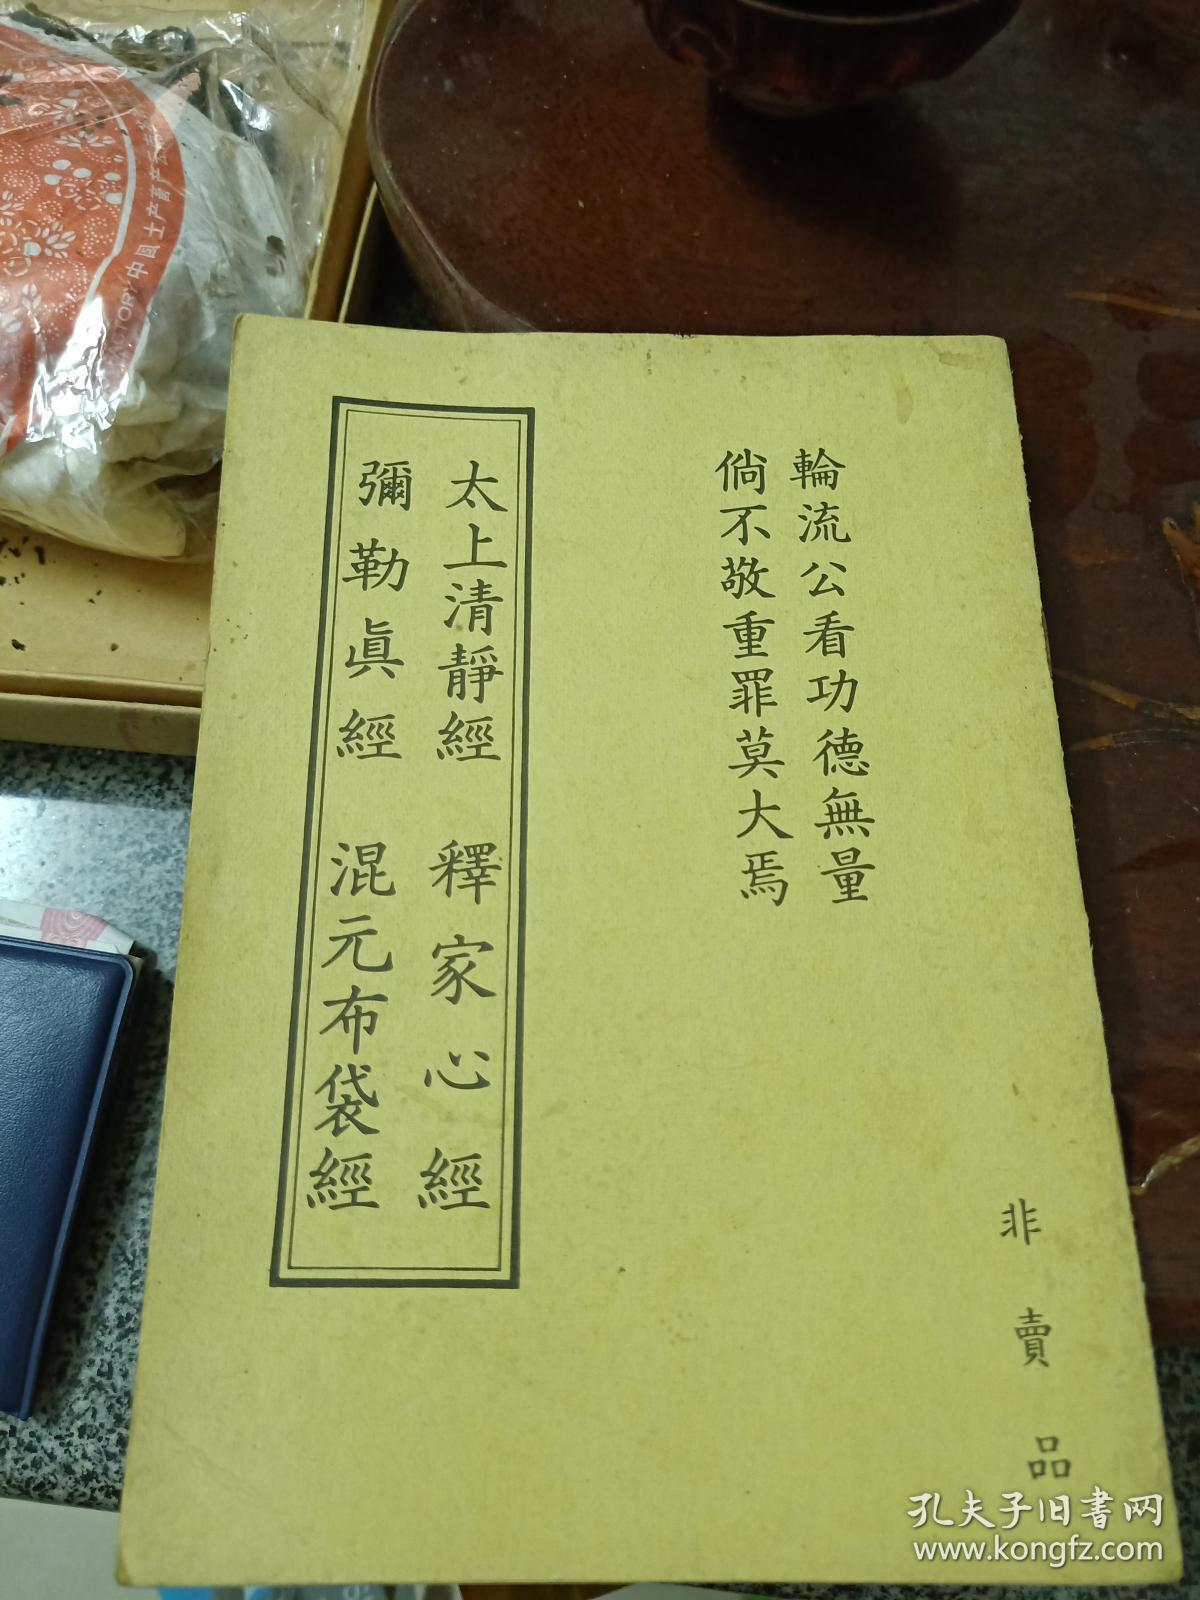 輪流公看功德無量
倘不敬重罪莫大焉
太上清靜經 釋家心經
彌勒眞經 混元布袋經
非賣品
中國土产畜产
TORY
孔夫子旧書网
www.kongfz.com